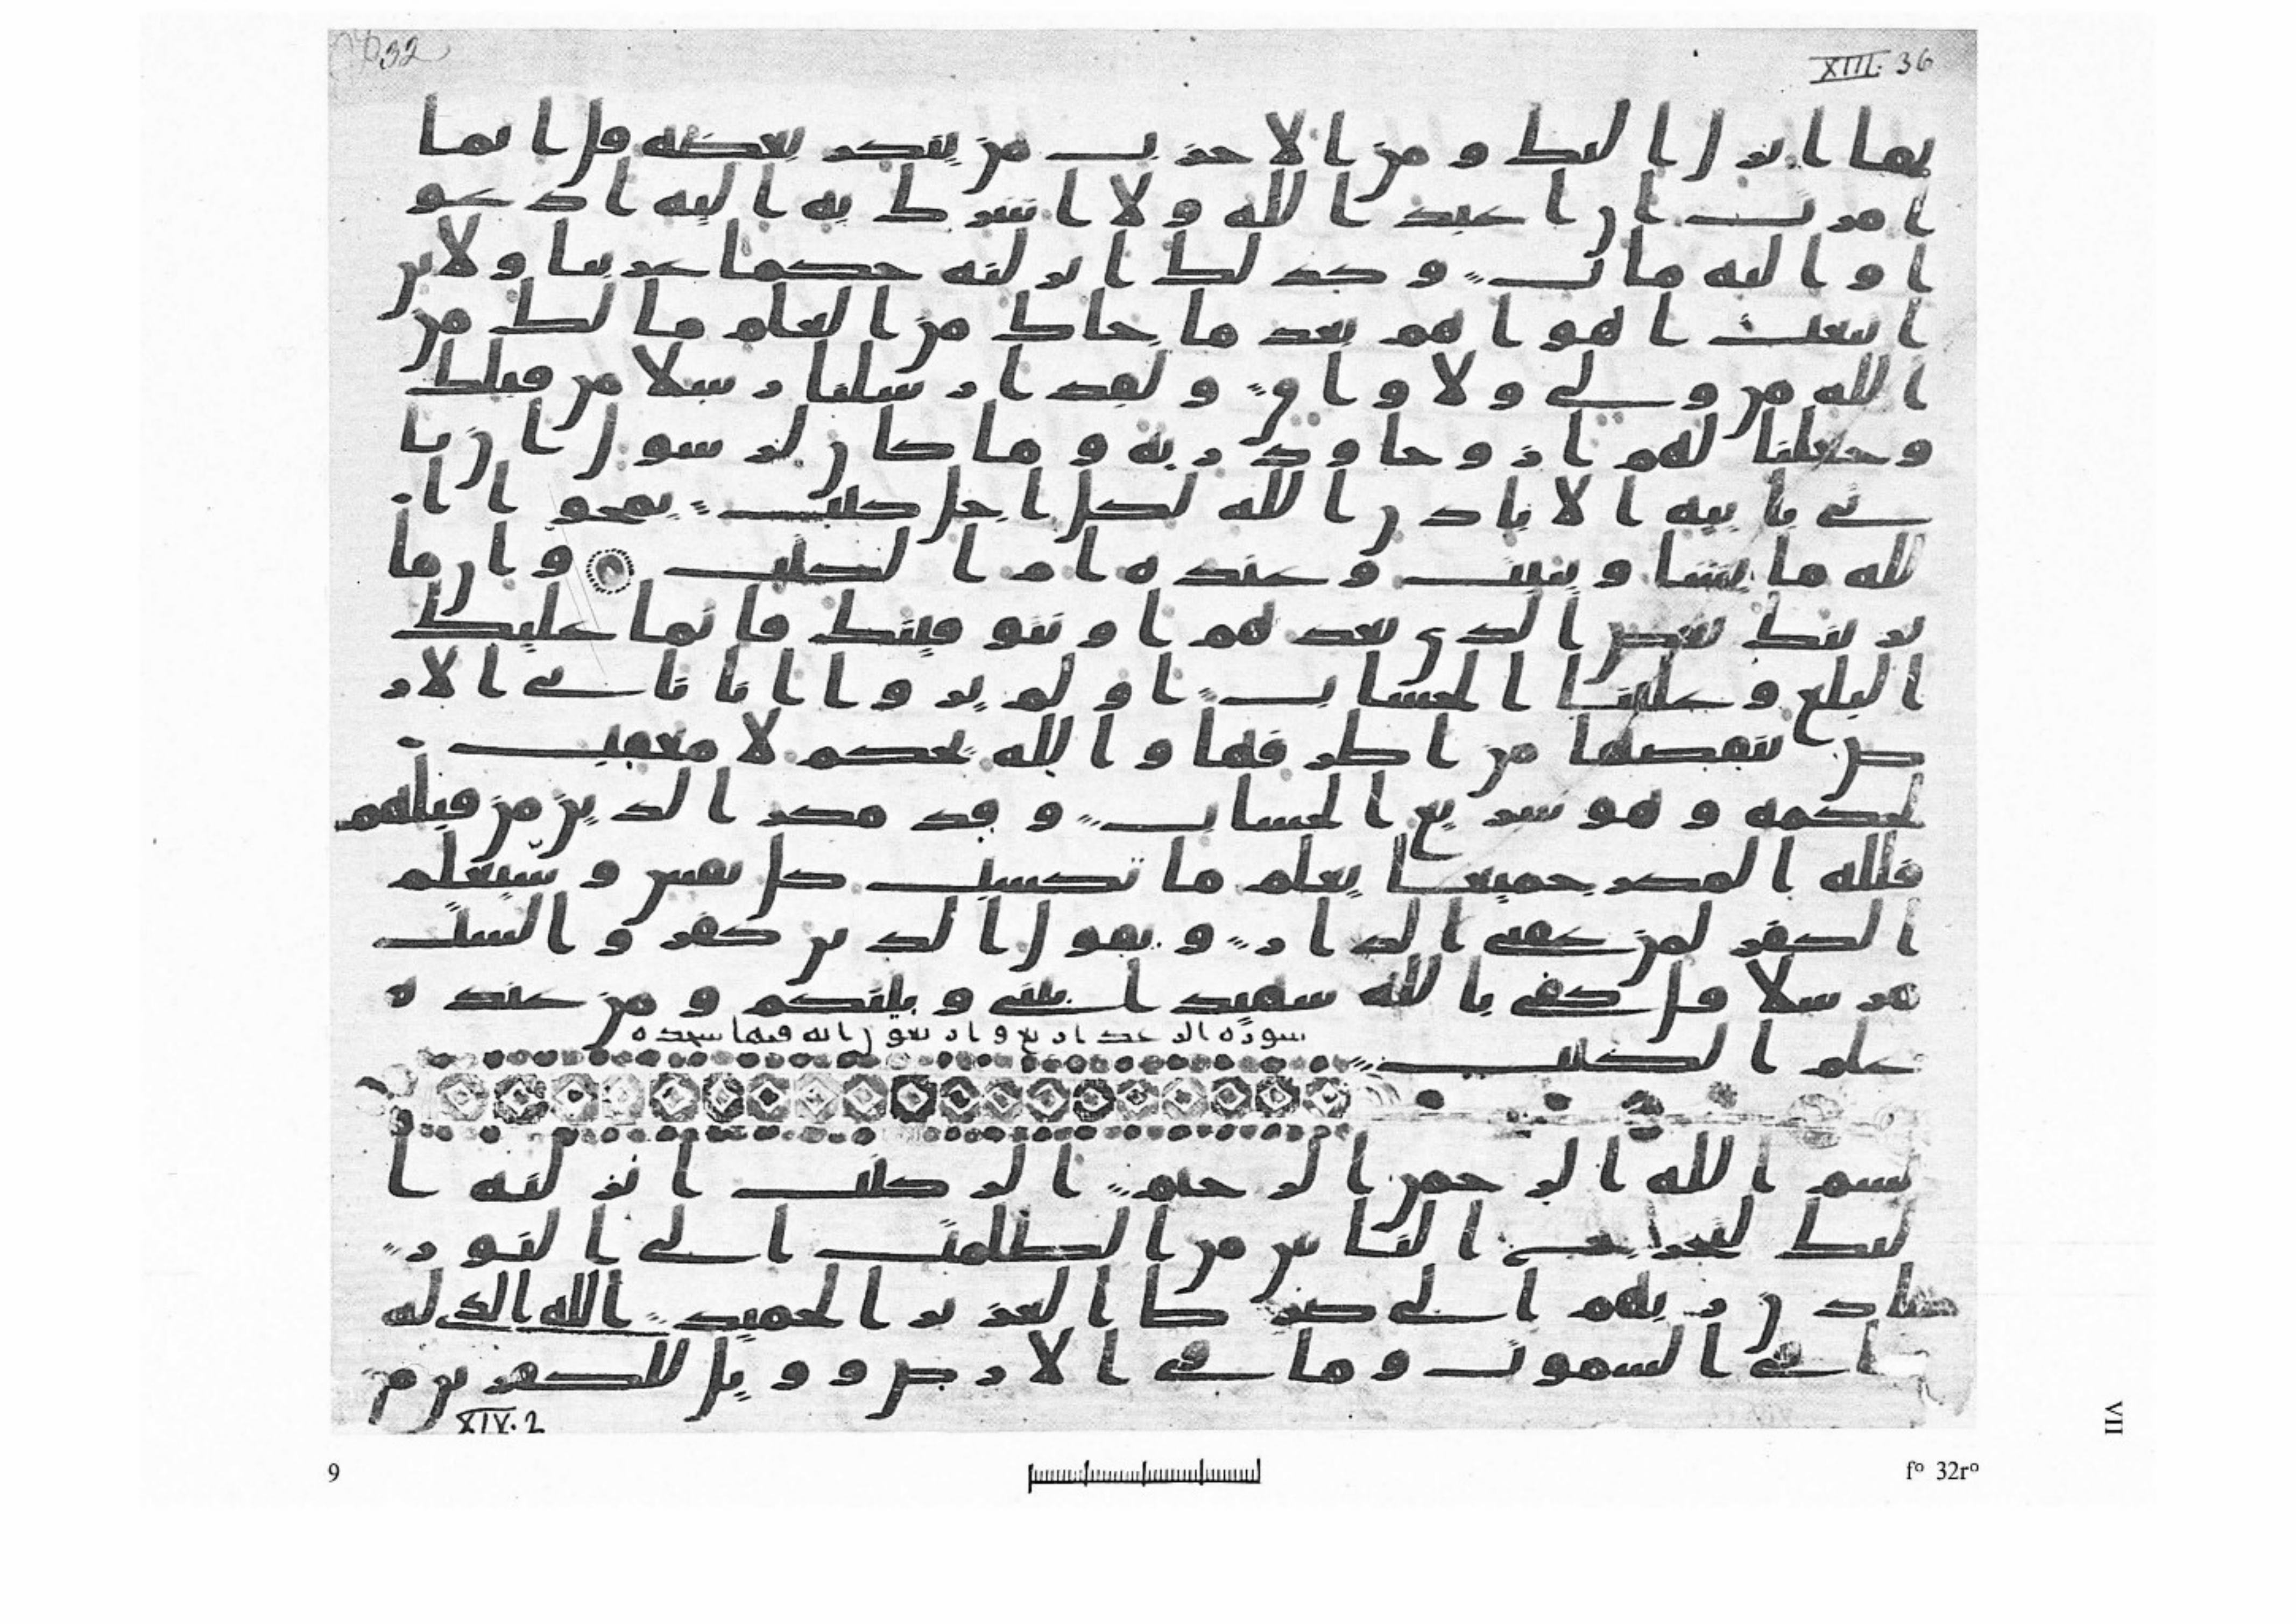 XIII. 36
32
بما انزل اليك و من الاحزب من ينكر بعضه قل انما
امرت ان اعبد الله ولا اشرك به اليه ادعو
ا واليه ماب وكذلك انزلنه حكما عربيا ولاين
اتبعت اهواهم بعد ما جاك من العلم ما لك من
الله من ولي ولا واق ولقد ارسلنا رسلا من قبلك
وجعلنا لهم ازوجا وذرية وما كان لرسول ان يا
تي باييه الا باذن الله لكل اجل كتب يمحوا ا
لله ما يشا ويثبت وعنده ام الكتب وان ما
نرينك بعض الذي نعدهم او نتوفينك فانما عليك
البلغ وعلينا الحساب اولم يروا انا ناتي الار
ض ننقصها من اطرفها والله يحكم لا معقب
لحكمه وهو سريع الحساب وقد مكر الذين من قبلهم
فلله المكر جميعا يعلم ما تكسب كل نفس وسيعلم
الكفر لمن عقبى الدار ويقول الذين كفروا لست
مرسلا قل كفى بالله شهيدا بيني وبينكم ومن عنده
علم الكتب
سورة الرعد اربع واربعون اية فيها سجده
بسم الله الرحمن الرحيم الر كتب انزلنه ا
ليك لتخرج الناس من الظلمت الى النور
باذن ربهم الى صرط العزيز الحميد الله الذي له
ما في السموت وما في الارض وويل للكفرين من
XIV. 2
9
fº 32rº
VII